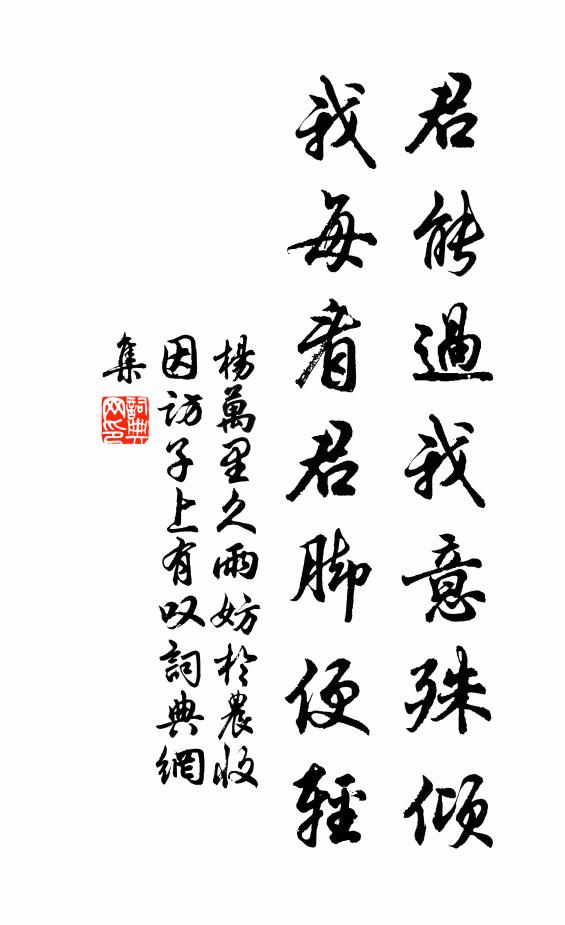 君能過我意殊傾
我每看君脚便輕
楊萬里久雨妨於農收
因訪子上有叹詞典網
集
詞典網印